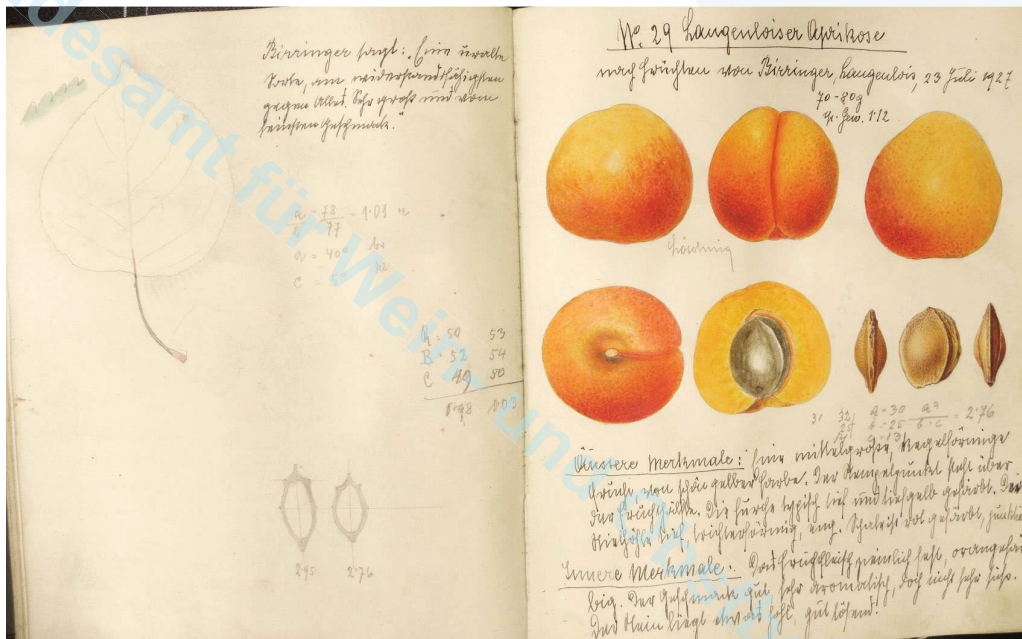 Birringer sagt: "Eine uralte
Sorte, am widerstandsfähigsten
gegen Alles. Sehr groß und vom
feinsten Geschmack."
= 78/77 = 1·01
= 40°
C =
A = 50 53
B = 52 54
C 49 50
0·98 1·03
2·95 2·76
No. 29 Langenloiser Aprikose
nach Früchten von Birringer, Langenlois, 23 Juli 1927
70-80g
Gew. 1·12
31 32 a=30 = 2·76
25 b=25 b·c
Äussere Merkmale: Eine mittelgroße, kegelförmige
Frucht, von schön gelber Farbe. Der Stempelpunkt steht über
der Fruchthälfte. Die Furche typisch tief und tiefgelb gefärbt. Die
Stielhöhle tief, trichterförmig, eng. Schale ist rot gefärbt,
Innere Merkmale: Das Fruchtfleisch ziemlich fest, orangefar-
big. Der Geschmack gut, sehr aromatisch, doch nicht sehr süß.
Der Stein liegt etwas hohl, gut lösend!
desamt für Wein und Obstb